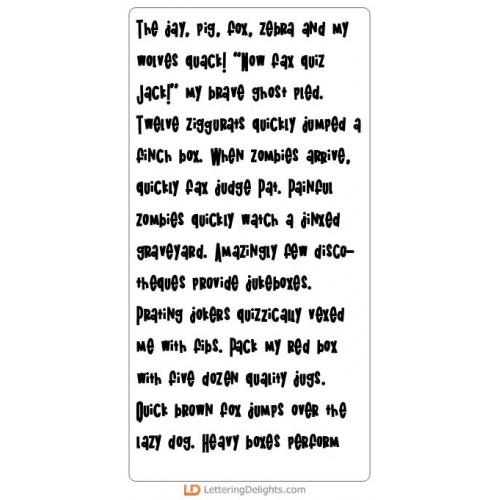 The jay, pig, fox, zebra and my
wolves quack! "Now fax quiz
Jack!" my brave ghost pled.
Twelve ziggurats quickly jumped a
finch box. When zombies arrive,
quickly fax judge Pat. Painful
zombies quickly watch a jinxed
graveyard. Amazingly few disco-
theques provide jukeboxes.
Prating jokers quizzically vexed
me with fibs. Pack my red box
with five dozen quality jugs.
Quick brown fox jumps over the
lazy dog. Heavy boxes perform
LD LetteringDelights.com